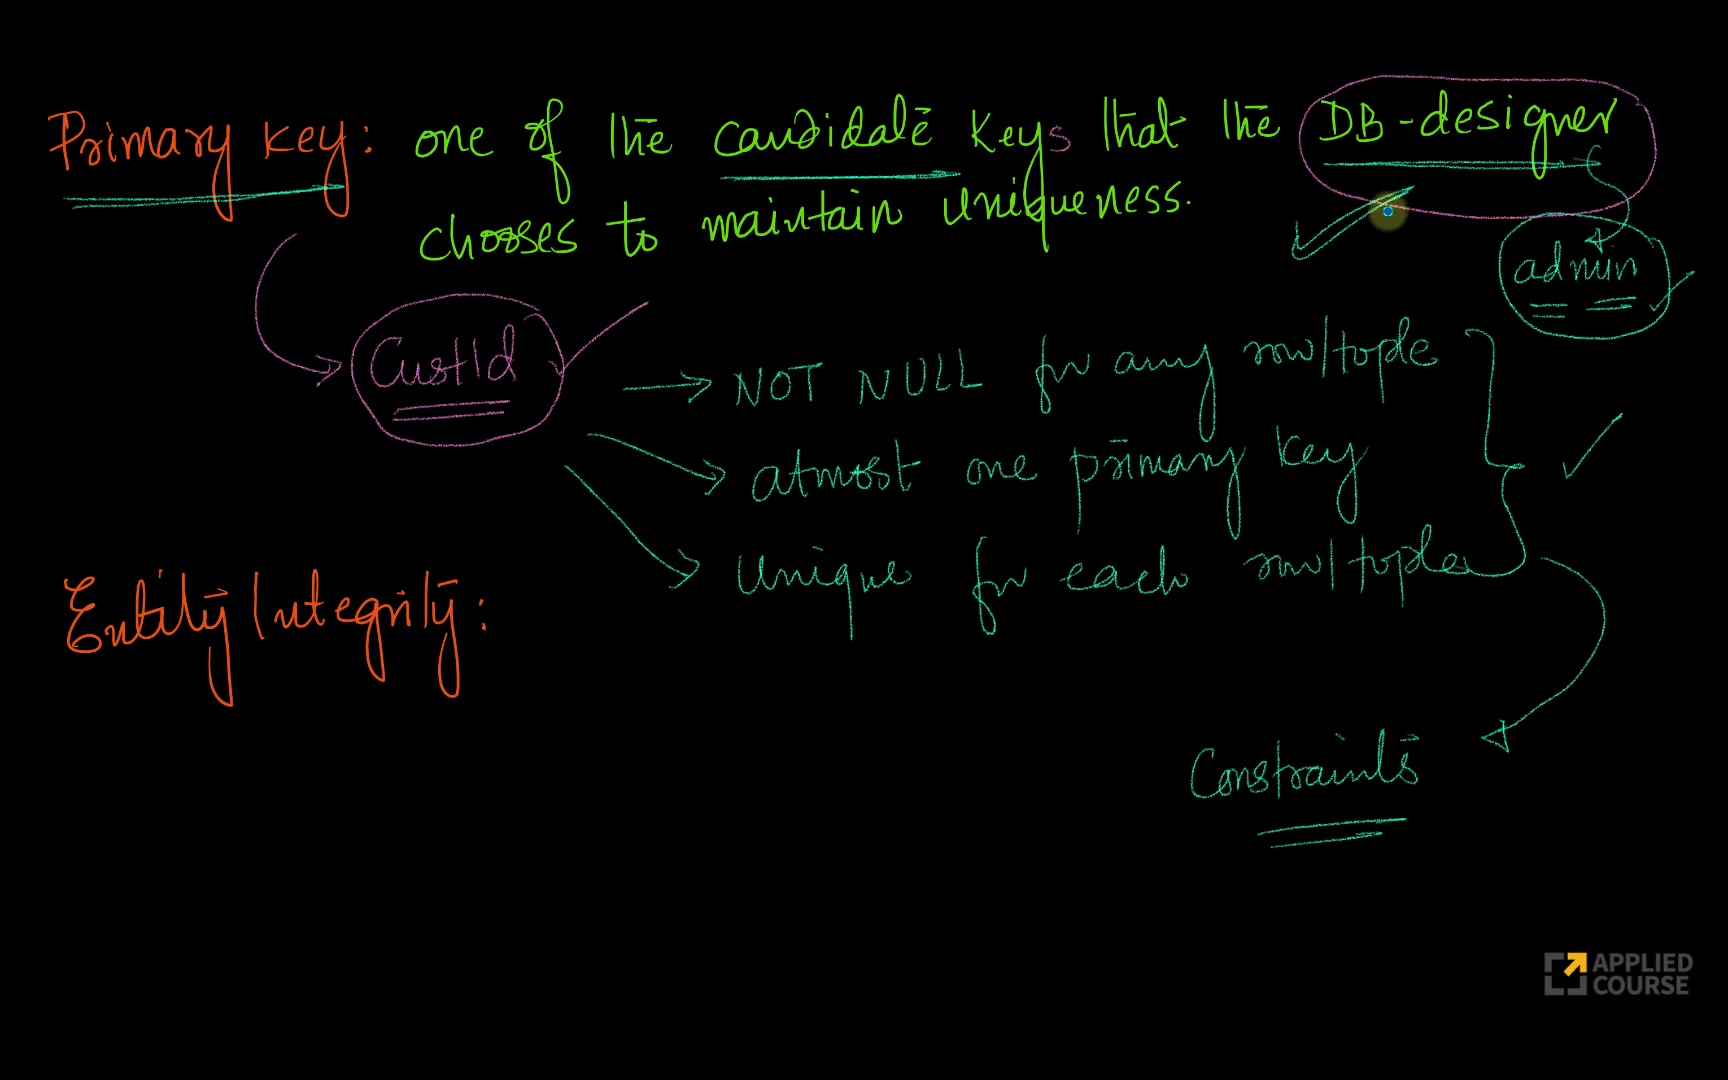 Primary key: one of the candidate keys that the DB-designer
chooses to maintain uniqueness.
admin
CustId
→ NOT NULL for any row/tople
→ atmost one primary key
→ unique for each row/tople
Entity Integrity:
Constraints
APPLIED
COURSE